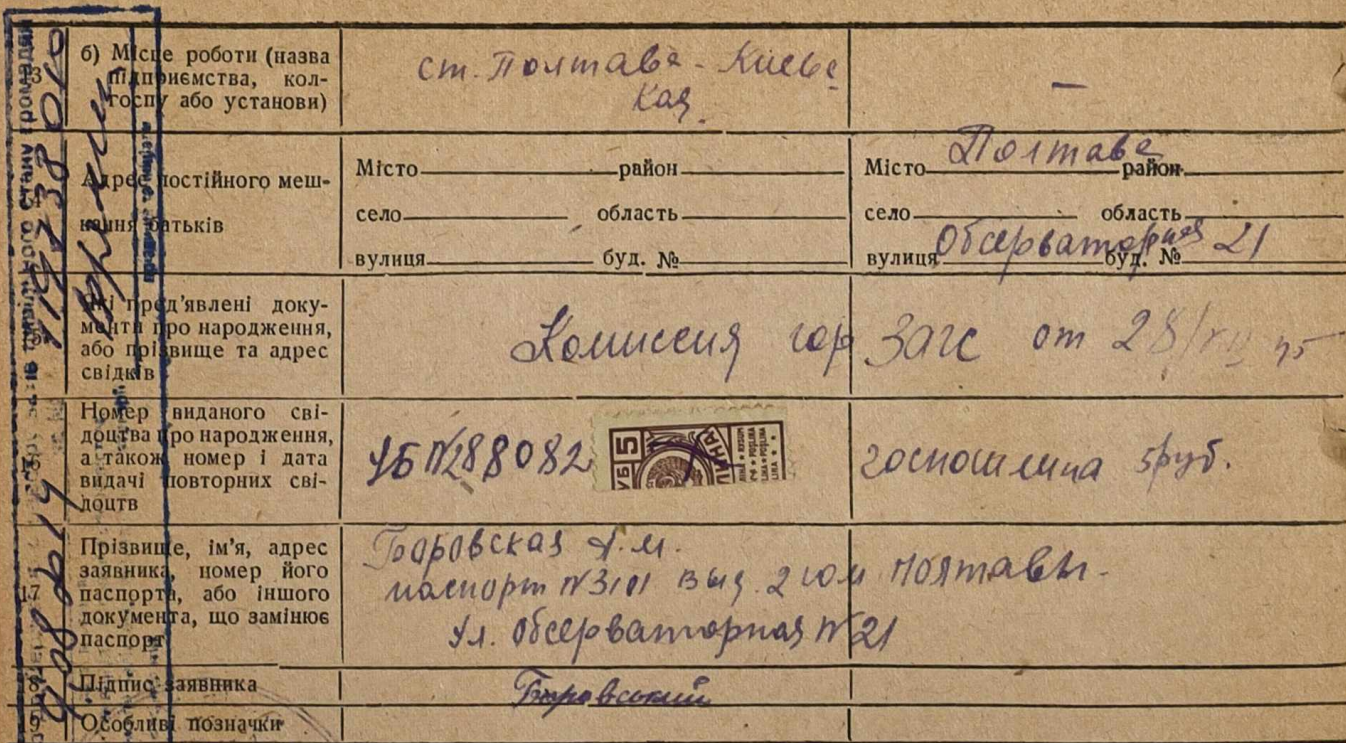 13
б) Місце роботи (назва
підприємства, кол-
госпу або установи)
ст. Полтава - Киевс
кая.
—
14
Адрес постійного меш-
кання батьків
Місто район
село область
вулиця буд. №
Місто Полтава район
село область
вулиця Обсерваторная буд. № 21
Які пред'явлені доку-
менти про народження,
або прізвище та адрес
свідків
Комиссия гор Загс от 28/
Номер виданого сві-
доцтва про народження,
а також номер і дата
видачі повторних сві-
доцтв
УБ №288082
5
госпошлина 5 руб.
17
Прізвище, ім'я, адрес
заявника, номер його
паспорта, або іншого
документа, що замінює
паспорт
Боровская А.М.
паспорт №3101 выд. 2 гом Полтавы.
Ул. Обсерваторная №21
18
Підпис заявника
Боровський
19
Особливі позначки